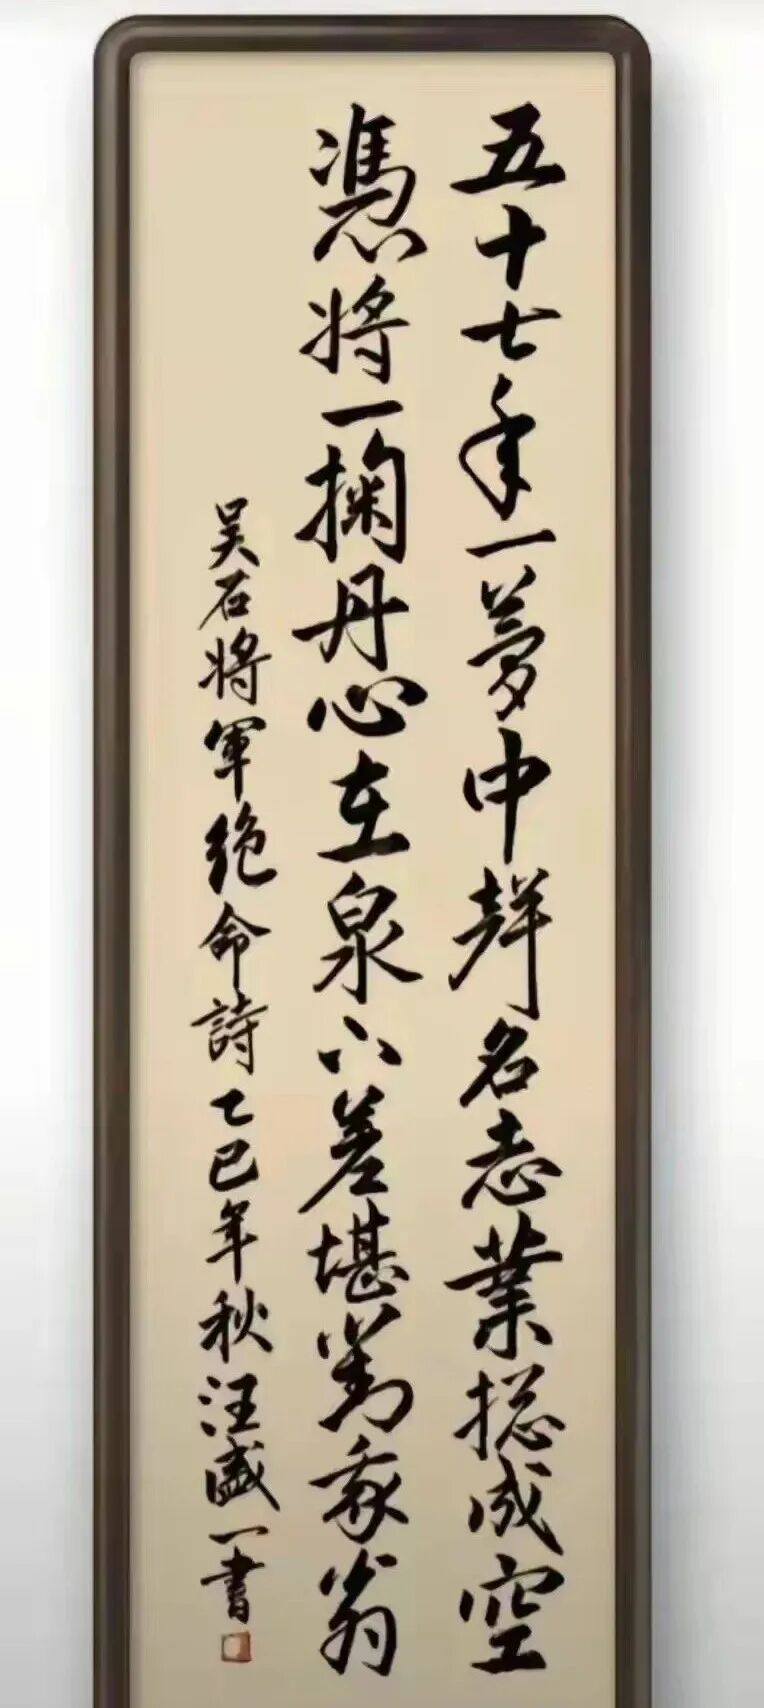 五十七年一夢中聲名志業摠成空
憑將一掬丹心在泉下差堪對我翁
吳石將軍絕命詩乙巳年秋汪盛一書